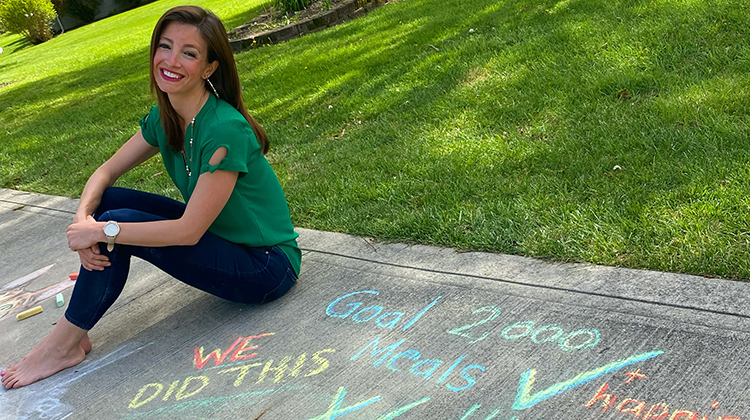 Goal 2,000
Meals
WE
DID THIS